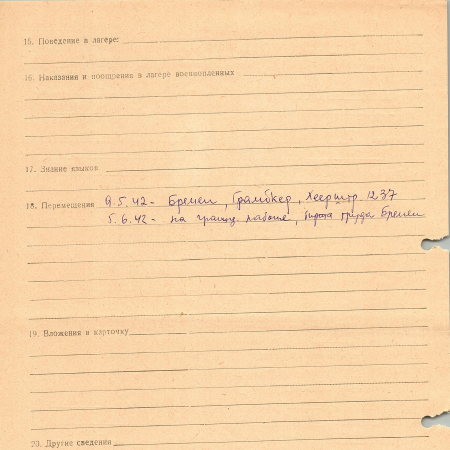 15. Поведение в лагере:
16. Наказания и поощрения в лагере военнопленных
17. Знание языков
18. Перемещения 9.5.42 - Бремен, Грамбкер, Хеерштр. 237
5.6.42 - на гражд. работе, биржа труда Бремен
19. Вложения в карточку
20. Другие сведения